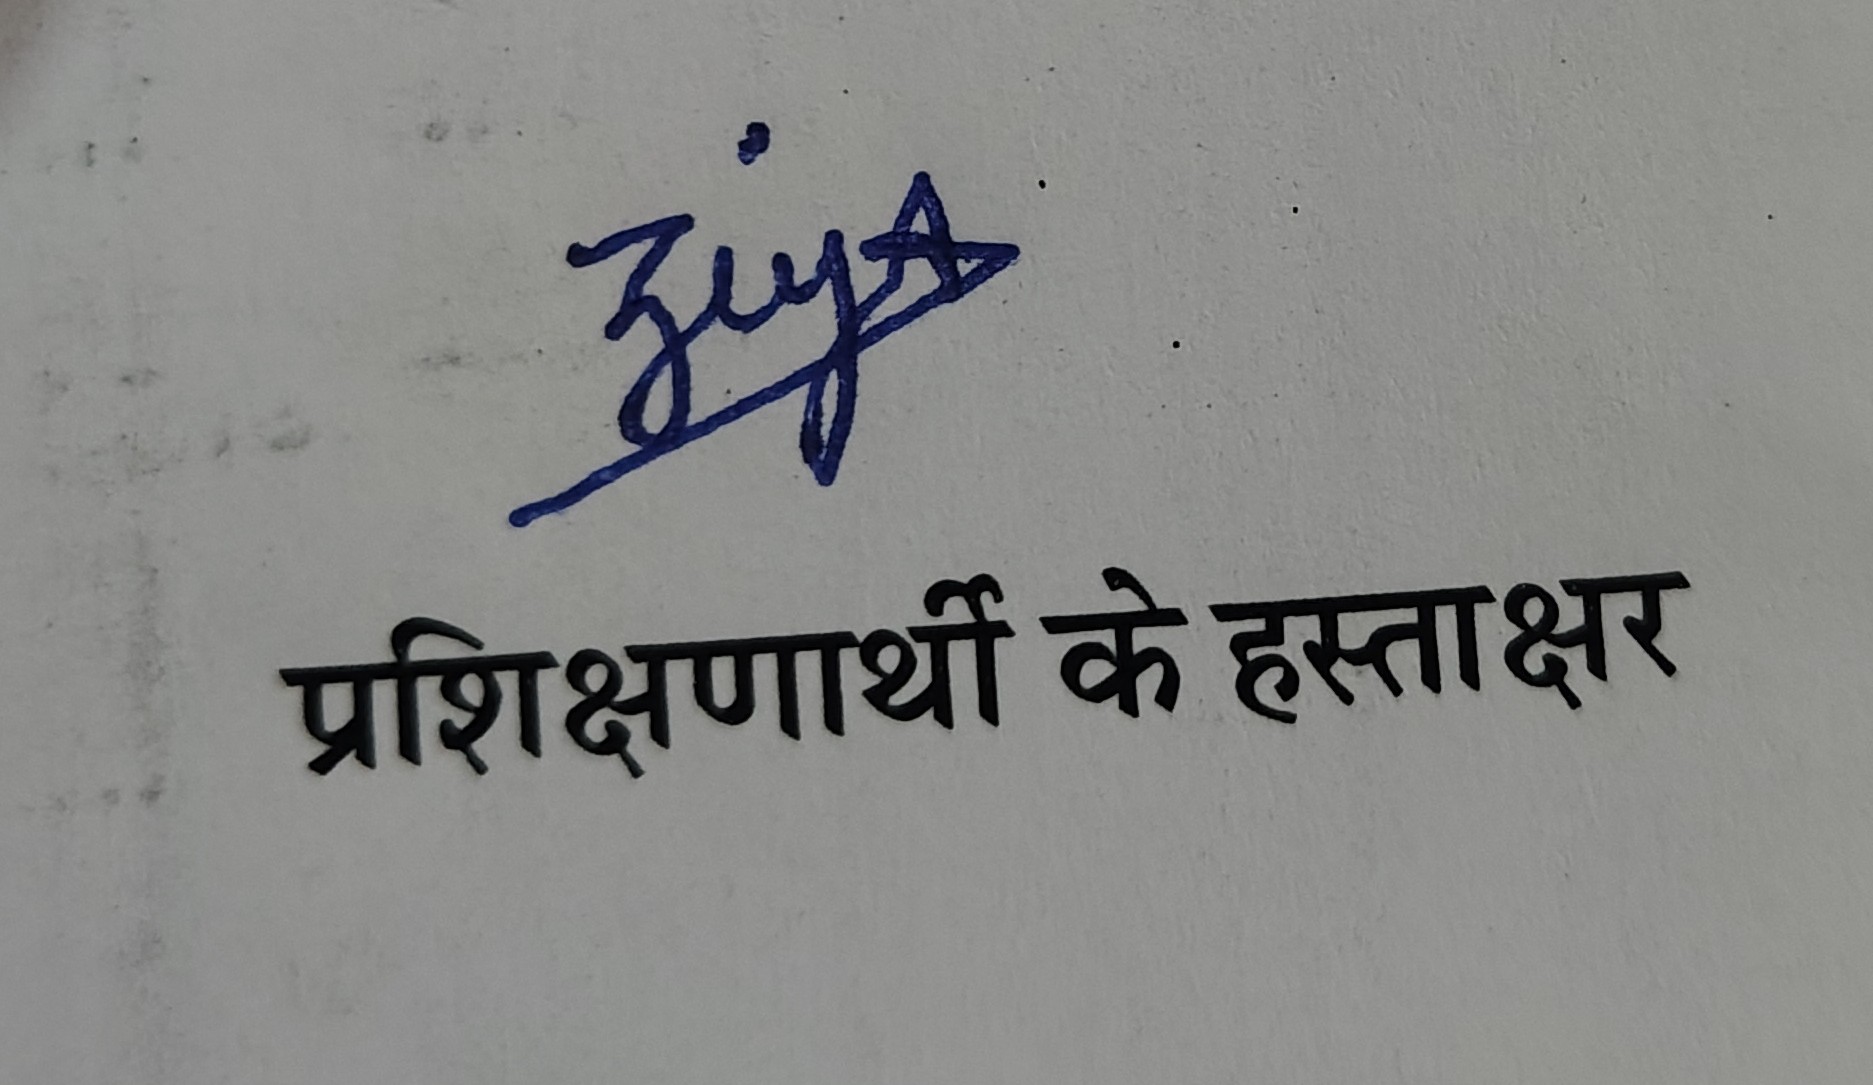 ziyA
प्रशिक्षणार्थी के हस्ताक्षर